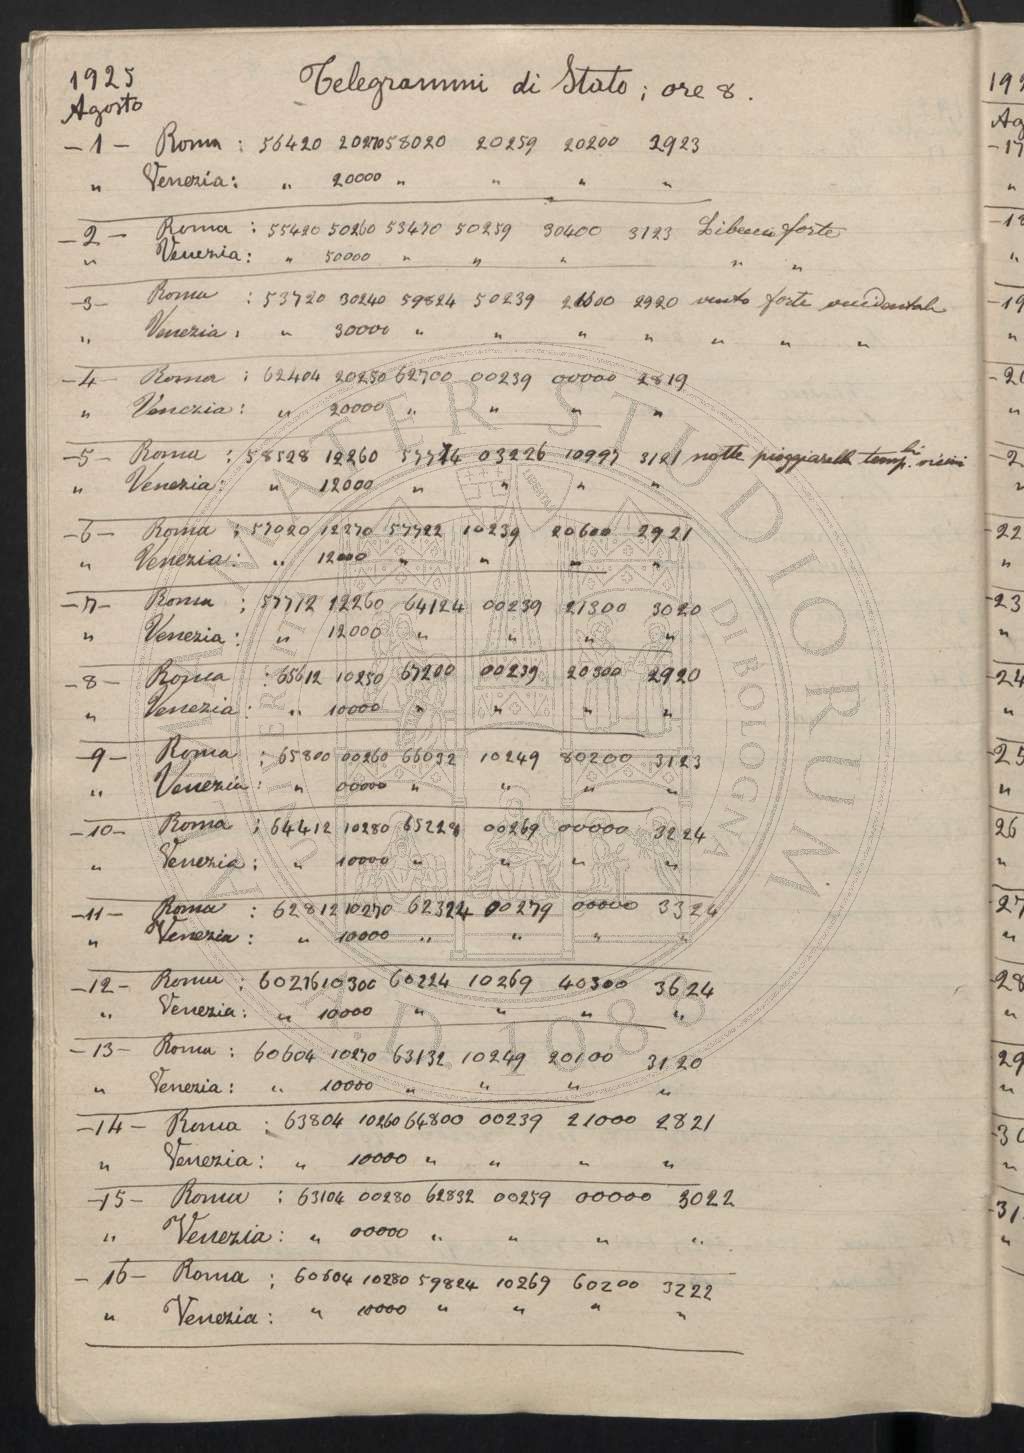 1925
Telegrammi di Stato; ore 8.
Agosto
-1- Roma : 56420 20270 58020 20259 20200 2923
" Venezia: " 20000 " " " "
-2- Roma : 55420 50260 53470 50259 30400 3123 Libeccio forte
" Venezia: " 50000 " " " " "
-3- Roma : 53720 30240 59824 50239 21600 2920 vento forte occidentale
" Venezia: " 30000 " " " " " " "
-4- Roma : 62404 20250 62700 00239 00000 2819
" Venezia: " 20000 " " " "
-5- Roma : 58528 12260 57724 03226 10997 3121 notte pioggiarella temp.li vicini
" Venezia: " 12000 " " " "
-6- Roma : 57020 12270 57722 10239 20600 2921
" Venezia: " 12000 " " " "
-7- Roma : 57712 12260 64124 00239 21300 3020
" Venezia: " 12000 " " " "
-8- Roma : 65612 10250 67200 00239 20300 2920
" Venezia: " 10000 " " " "
-9- Roma : 65800 00260 66032 10249 80200 3123
" Venezia: " 00000 " " " "
-10- Roma : 64412 10280 65228 00269 00000 3224
" Venezia: " 10000 " " " "
-11- Roma : 62812 10270 62324 00279 00000 3324
" Venezia: " 10000 " " " "
-12- Roma : 60276 10300 60224 10269 40300 3624
" Venezia: " 10000 " " " "
-13- Roma : 60604 10270 63132 10249 20100 3120
" Venezia: " 10000 " " " "
-14- Roma : 63804 10260 64800 00239 21000 2821
" Venezia: " 10000 " " " "
-15- Roma : 63104 00280 62832 00259 00000 3022
" Venezia: " 00000 " " " "
-16- Roma : 60604 10280 59824 10269 60200 3222
" Venezia: " 10000 " " " "
ALMA MATER STUDIORUM
UNIVERSITÀ DI BOLOGNA
A.D. 1088
192
Ag
-17
"
-18
"
-19
"
-20
"
-2
"
-22
"
-23
"
-24
"
-25
"
26
"
-27
"
-28
"
29
"
-30
"
-31
"